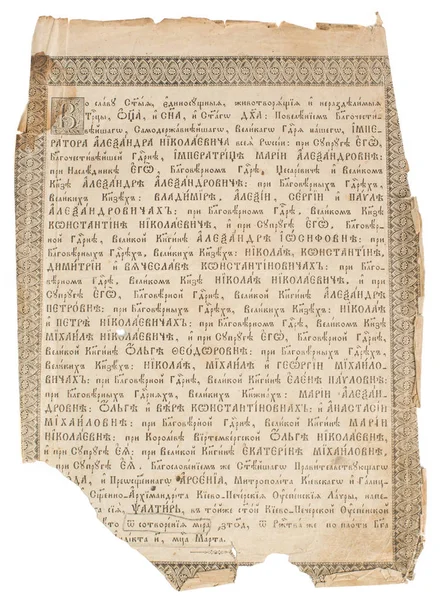 Во славу Ст҃ыѧ, єдиносущныѧ, животворѧщїѧ и нераздѣлимыѧ
Трⷪ҇цы, Ѻ҆ц҃а, и҆ Сн҃а, и҆ Ст҃агѡ Дх҃а: Повелѣнїемъ Благочести-
вѣйшагѡ, Самодержавнѣйшагѡ, Великагѡ Гдⷭ҇рѧ нашегѡ, ІМПЕ-
РАТОРА АЛЕѮАНДРА НІКОЛАЕВИЧА всеѧ Рѡссїи: при Сꙋпрꙋгѣ ЕГѠ,
Благочестивѣйшей Гдⷭ҇рнѣ, ІМПЕРАТРИЦѢ МАРІИ АЛЕѮАНДРОВНѢ:
при Наслѣдникѣ ЕГѠ, Благовѣрномъ Гдⷭ҇рѣ, Цесаревичѣ и҆ Великомъ
Кн҃зѣ АЛЕѮАНДРѢ АЛЕѮАНДРОВИЧѢ: при Благовѣрныхъ Гдⷭ҇рѣхъ,
Великихъ Кн҃зѣхъ: ВЛАДИМІРѢ, АЛЕѮІИ, СЕРГІИ и҆ ПАѴЛѢ
АЛЕѮАНДРОВИЧАХЪ: при Благовѣрномъ Гдⷭ҇рѣ, Великомъ Кн҃зѣ
КѠНСТАНТІНѢ НІКОЛАЕВИЧѢ, и҆ при Сꙋпрꙋгѣ ЕГѠ, Благовѣр-
ной Гдⷭ҇рнѣ, Великой Кнѧгинѣ АЛЕѮАНДРѢ ІѠСИФОВНѢ: при
Благовѣрныхъ Гдⷭ҇рѣхъ, Великихъ Кн҃зѣхъ: НІКОЛАѢ, КѠНСТАНТІНѢ,
ДИМИТРІИ и҆ ВѦЧЕСЛАВѢ КѠНСТАНТІНОВИЧАХЪ: при Благо-
вѣрномъ Гдⷭ҇рѣ, Великомъ Кн҃зѣ НІКОЛАѢ НІКОЛАЕВИЧѢ, и҆ при
Сꙋпрꙋгѣ ЕГѠ, Благовѣрной Гдⷭ҇рнѣ, Великой Кнѧгинѣ АЛЕѮАНДРѢ
ПЕТРОВНѢ: при Благовѣрныхъ Гдⷭ҇рѣхъ, Великихъ Кн҃зѣхъ: НІКОЛАѢ
и҆ ПЕТРѢ НІКОЛАЕВИЧАХЪ: при Благовѣрномъ Гдⷭ҇рѣ, Великомъ Кн҃зѣ
МІХАИЛѢ НІКОЛАЕВИЧѢ, и҆ при Сꙋпрꙋгѣ ЕГѠ, Благовѣрной Гдⷭ҇рнѣ,
Великой Кнѧгинѣ ѺЛЬГѢ ФЕОДОРОВНѢ: при Благовѣрныхъ Гдⷭ҇рѣхъ,
Великихъ Кн҃зѣхъ: НІКОЛАѢ, МІХАИЛѢ и҆ ГЕѠРГІИ МІХАИЛО-
ВИЧАХЪ: при Благовѣрной Гдⷭ҇рнѣ, Великой Кнѧгинѣ ЕЛЕНѢ ПАѴЛОВНѢ:
при Благовѣрныхъ Великихъ Кнѧжнахъ: МАРІИ АЛЕѮАН-
ДРОВНѢ: ѺЛЬГѢ и҆ ВѢРѢ КѠНСТАНТІНОВНАХЪ: и҆ АНАСТАСІИ
МІХАИЛОВНѢ: при Благовѣрной Гдⷭ҇рнѣ, Великой Кнѧгинѣ МАРІИ
НІКОЛАЕВНѢ, при Королевѣ Віртембергской ѺЛЬГѢ НІКОЛАЕВНѢ,
и҆ при Сꙋпрꙋгѣ ЕѦ: при Благовѣрной Великой Кнѧгинѣ ЕКАТЕРІНѢ МІХАИЛОВНѢ,
при Сꙋпрꙋгѣ ЕѦ, Благословенїемъ же Ст҃ѣйшагѡ Правительствꙋющагѡ
ОДА, и҆ Преѡсвѧщеннагѡ АРСЕНІА, Митрополита Кїевскагѡ и҆ Галиц-
Сщ҃енно-Архімандріта Кїево-Печерскїѧ Ѹспенскїѧ Лаѵры, напе-
сїѧ ѰАЛТИРЬ, въ тойже ст҃ой Кїево-Печерской Ѹспенской
то ѿ сотворенїѧ мїра ҂зтод, ѿ Рⷤтва же по плоти Бг҃а
дїкта и҆, мц҃а Марта.